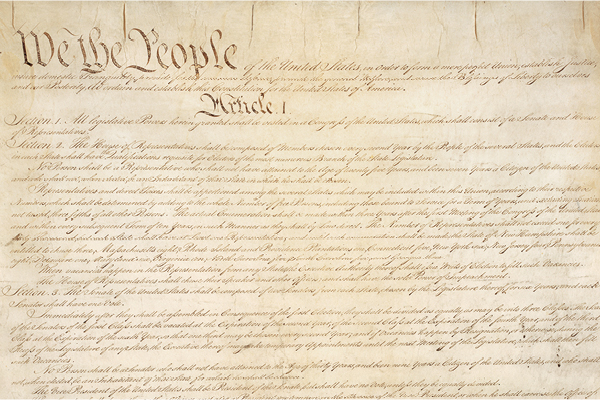 We the People of the United States, in Order to form a more perfect Union, establish Justice,
insure domestic Tranquility, provide for the common defence, promote the general Welfare, and secure the Blessings of Liberty to ourselves
and our Posterity, do ordain and establish this Constitution for the United States of America.
Article. I.
Section. 1. All legislative Powers herein granted shall be vested in a Congress of the United States, which shall consist of a Senate and House
of Representatives.
Section. 2. The House of Representatives shall be composed of Members chosen every second Year by the People of the several States, and the Electors
in each State shall have Qualifications requisite for Electors of the most numerous Branch of the State Legislature.
No Person shall be a Representative who shall not have attained to the Age of twenty five Years, and been seven Years a Citizen of the United States,
and who shall not, when elected, be an Inhabitant of that State in which he shall be chosen.
Representatives and direct Taxes shall be apportioned among the several States which may be included within this Union, according to their respective
Numbers, which shall be determined by adding to the whole Number of free Persons, including those bound to Service for a Term of Years, and excluding Indians
not taxed, three fifths of all other Persons. The actual Enumeration shall be made within three Years after the first Meeting of the Congress of the United States,
and within every subsequent Term of ten Years, in such Manner as they shall by Law direct. The Number of Representatives shall not exceed one for every
When vacancies happen in the Representation from any State, the Executive Authority thereof shall issue Writs of Election to fill such Vacancies.
The House of Representatives shall chuse their Speaker and other Officers
Section. 3. The Senate of the United States shall be composed of two Senators from each State, chosen by the Legislature thereof, for six Years; and each
Senator shall have one Vote.
Immediately after they shall be assembled in Consequence of the first Election, they shall be divided as equally as may be into three Classes. The Seats
of the Senators of the first Class shall be vacated at the Expiration of the second Year, of the second Class at the Expiration of the
Class at the Expiration of the sixth Year, so that one third may be chosen every second Year; and if Vacancies happen by Resignation, or otherwise, during the
Recess of the Legislature of any State, the Executive thereof may make temporary Appointments until the next Meeting of the Legislature, which shall then fill
such Vacancies.
No Person shall be a Senator who shall not have attained to the Age of thirty Years, and been nine Years a Citizen of the United States, and who shall
not, when elected, be an Inhabitant of that State for which he shall be chosen.
The Vice President of the United States shall be President of the Senate, but shall have no Vote, unless they be equally divided.